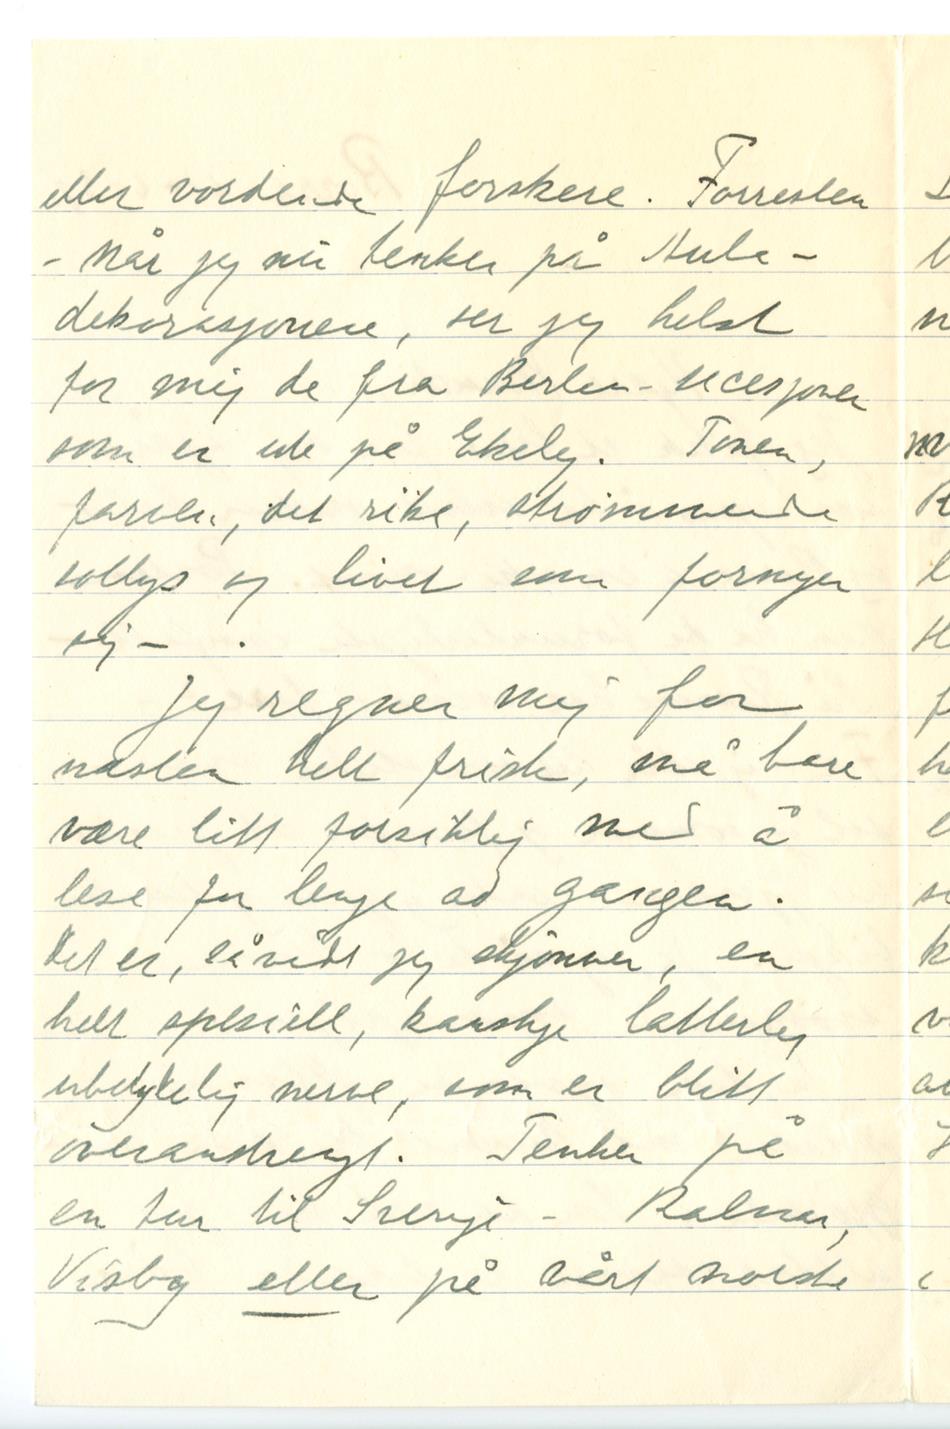 eller vordende forskere. Forresten
– Når jeg nu tenker på Aula-
dekorasjonene, ser jeg helst
for mig de fra Berlin-secesjonen
som er ute på Ekely. Tonen,
farven, det rike, strømmende
sollys og livet som fornyer
sig – .
Jeg regner mig for
næsten helt frisk, må bare
være litt forsiktig med å
lese for lenge ad gangen.
Det er, såvidt jeg skjønner, en
helt spesiell, kanskje latterlig
ubetydelig nerve, som er blitt
overanstrengt. Tenker på
en tur til Sverige – Kalmar,
Visby eller på vårt norske